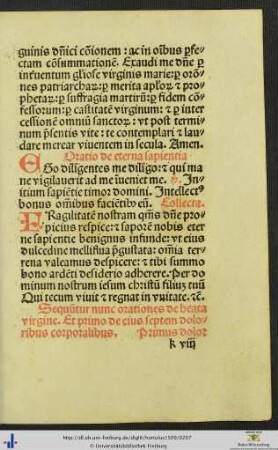 guinis dñici cõionem: ac in oĩbus ꝑfe-
ctam cõsummationē. Exaudi me dñe ꝑ
interuentum gliose virginis marie: ꝑ orõ-
nes patriarchaꝝ: ꝑ merita apl'oꝝ et ꝓ-
phetaꝝ: ꝑ suffragia martirũ: ꝑ fidem cõ-
fessorum: ꝑ castitatē virginum: et ꝑ inter
cessionē omniũ sanctoꝝ: vt post termi
num p̃sentis vite: te contemplari et lau-
dare merear viuentem in secula. Amen.
Oratio de eterna sapientia
EGo diligentes me diligo: et qui ma
ne vigilauerit ad me īueniet me. ℣. In-
itium sapiētie timor domini. Intellectꝰ
bonus om̃ibus faciētib eũ. Collecta.
FRagilitatē nostram q̃ms dñe pro-
picius respice: et saporē nobis eter
ne sapientie benignus infunde: vt eius
dulcedine melliflua p̃gustata: om̃ia ter-
rena valeamus despicere: et tibi summo
bono ardēti desiderio adherere. Per do
minum nostrum iesum christũ filiuꝫ tuũ
Qui tecum viuit et regnat in vnitate. ⁊c̃.
Sequũtur nunc orationes de beata
virgine. Et primo de eius septem dolo-
ribus corporalibus. Primus dolor
k viij
http://dl.ub.uni-freiburg.de/diglit/hortulus1500/0207
© Universitätsbibliothek Freiburg
Baden-Württemberg